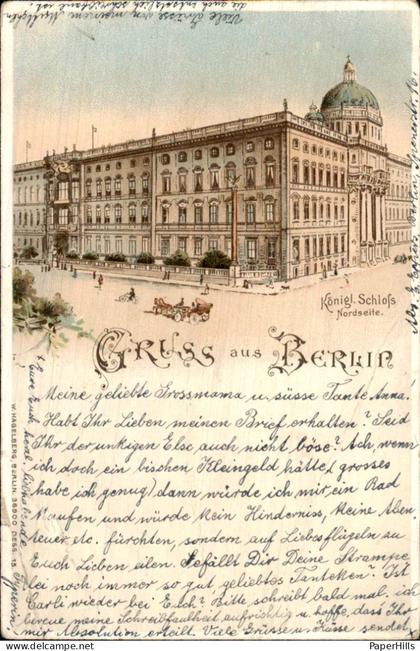 Königl. Schloss
Nordseite.
GRUSS aus BERLIN
Meine geliebte Grossmama u. süsse Tante Anna.
Habt Ihr Lieben meinen Brief erhalten? Seid
Ihr der unkigen Else auch nicht böse? Ach, wenn
ich doch ein bischen Kleingeld hätte, (grosses
habe ich genug) dann würde ich mir ein Rad
kaufen und würde kein Hinderniss, keine Aben
teuer etc. fürchten, sondern auf Liebesflügeln zu
Euch Lieben eilen. Gefällt Dir Deine Strampe
lei noch immer so gut, geliebtes Tanteken? Ist
Carli wieder bei Euch? Bitte schreibt bald mal. ich
bereue meine Schreibfaulheit aufrichtig u. hoffe, dass Ihr
mir Absolution erteilt. Viele Grüsse u. Küsse sendet
Viele Grüsse von meinem
W. HAGELBERG, BERLIN.
PaperHills - Delcampe.net